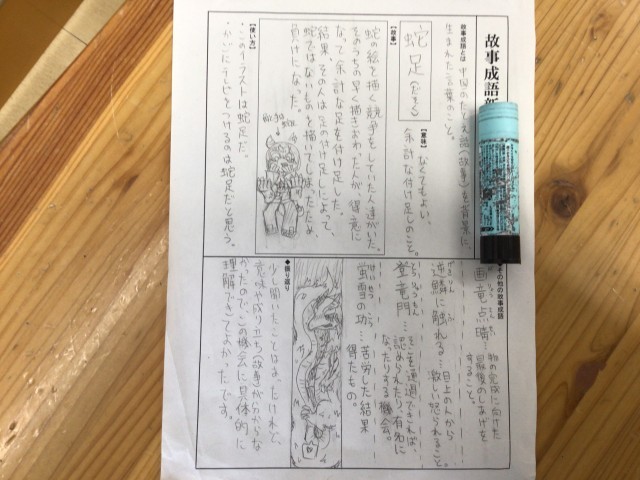 故事成語新
故事成語とは
中国のたとえ話(故事)を背景に、
生まれた言葉のこと。
蛇足(だそく)
【意味】
なくてもよい、
余計な付け足しのこと。
【故事】
蛇の絵を描く競争をしていた人達がいた。
そのうちの早く描きおわった人が、得意に
なって余計な足を付け足した。
結果、その人は足の付け足しによって、
蛇ではないものを描いてしまったため、
負けになった。
【使い方】
・このイラストは蛇足だ。
・かいにテレビをつけるのは蛇足だと思う。
◆その他の故事成語
画竜点晴…
物の完成に向けた
最後のしあげを
すること。
逆鱗に触れる…目上の人から
激しく怒られること。
登竜門…そこを通過できれば、
認められたり、有名に
なったりする機会。
蛍雪の功…苦労した結果
得たもの。
◆振り返り
少し聞いたことはあったけれど、
意味や成り立ち(故事)が分からな
かったので、この機会に具体的に
理解できてよかったです。